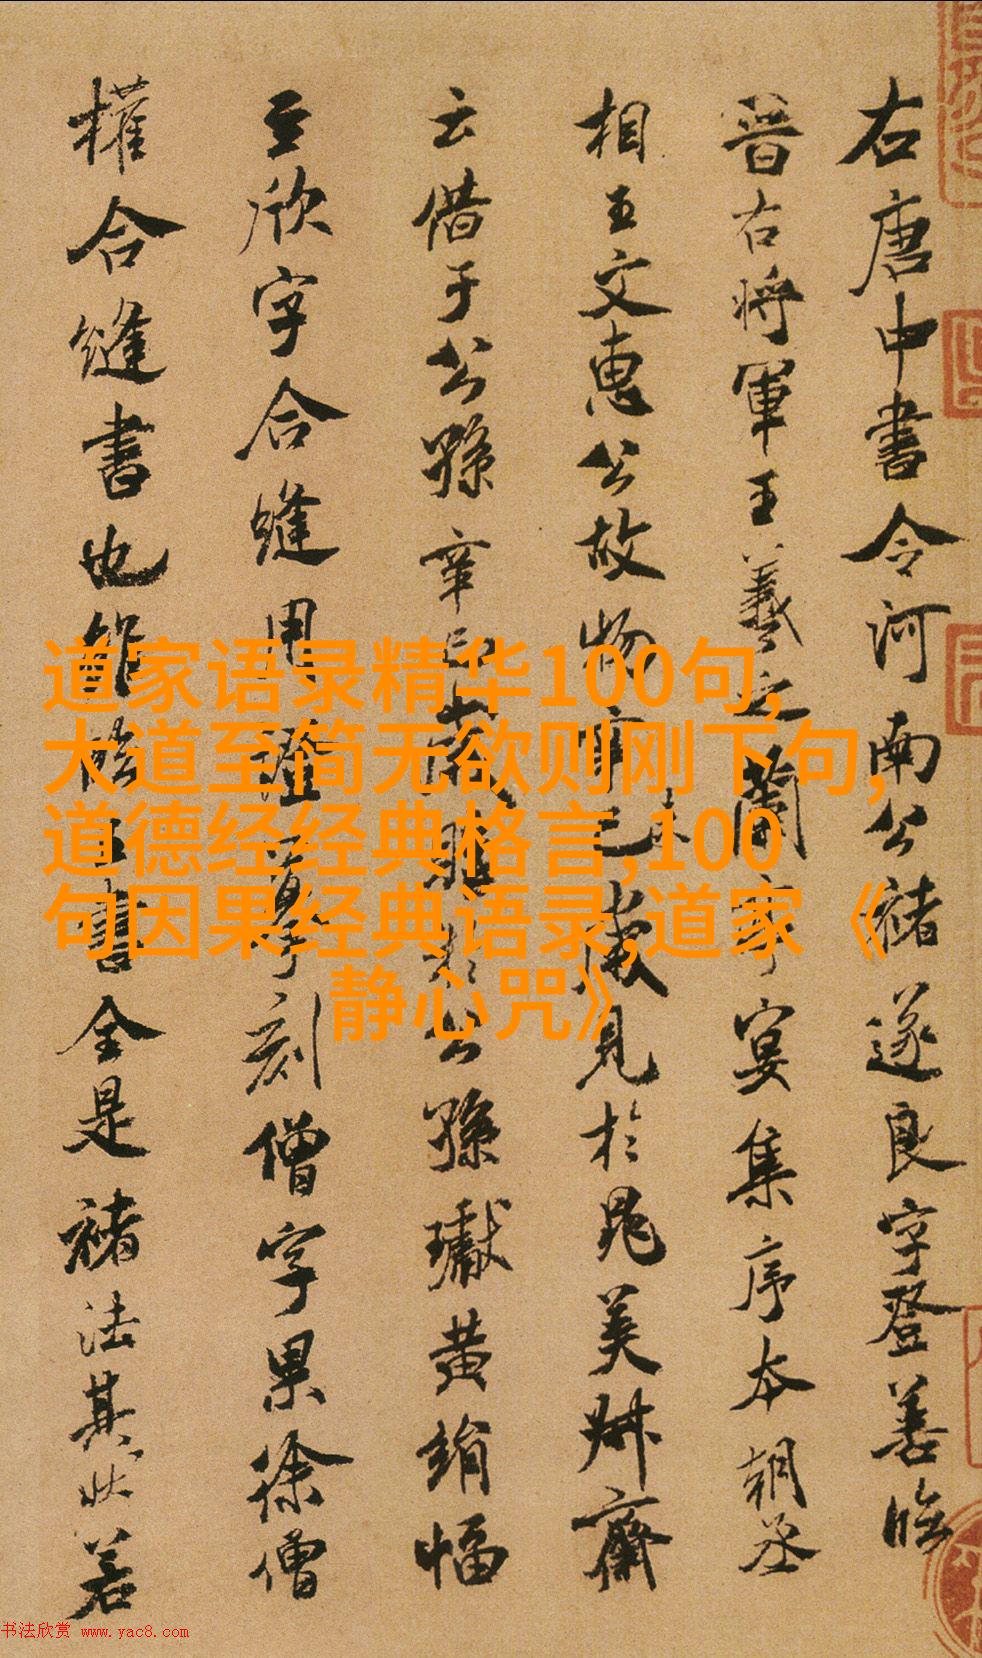 右唐中書令河南公褚遂良字登善臨
晉右將軍王羲之蘭亭宴集序本朝丞
相王文惠公故物辛巳歲見於晁美叔齋
云借于公孫
公孫瓛黃絹幅
至欣字合縫用證摹刻僧字果徐僧
權合縫書也雖臨王書全是褚法其狀若
道家语录精华100句,
大道至简无欲则刚下句,
道德经经典格言,100
句因果经典语录,道家《
静心咒》
书法欣赏 www.yac8.com